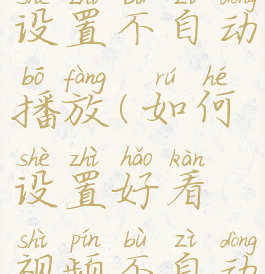 shè zhì bù zì dòng
设置不自动
bō fàng rú hé
播放(如何
shè zhì hǎo kàn
设置好看
shì pín bù zì dòng
视频不自动